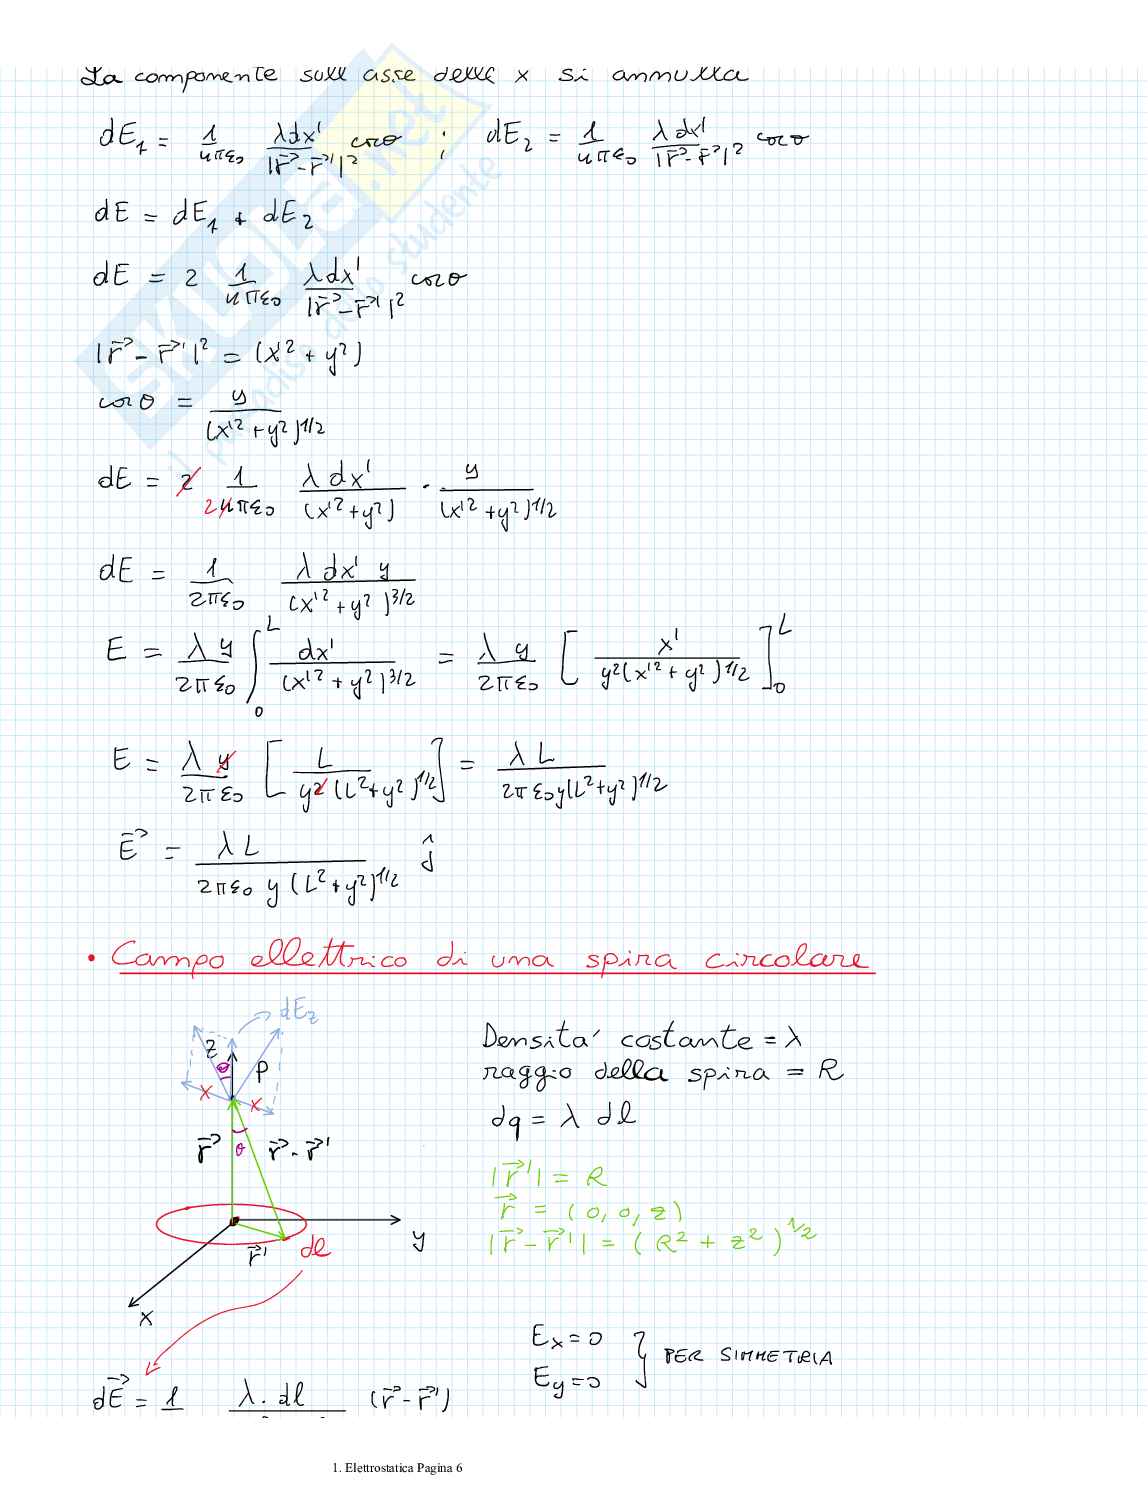 La componente sull asse delle x si annulla
dE₁ = 1/4πε₀ λdx'/|r⃗-r⃗'|² cosθ ; dE₂ = 1/4πε₀ λdx'/|r⃗-r⃗'|² cosθ
dE = dE₁ + dE₂
dE = 2 1/4πε₀ λdx'/|r⃗-r⃗'|² cosθ
|r⃗-r⃗'|² = (x'² + y²)
cosθ = y/(x'²+y²)^1/2
dE = 2 1/2 4πε₀ λdx'/(x'²+y²) · y/(x'²+y²)^1/2
dE = 1/2πε₀ λ dx' y/(x'²+y²)^3/2
E = λy/2πε₀ ∫₀^L dx'/(x'²+y²)^3/2 = λy/2πε₀ [x'/y²(x'²+y²)^1/2]₀^L
E = λy/2πε₀ [L/y²(L²+y²)^1/2] = λL/2πε₀y(L²+y²)^1/2
E⃗ = λL/2πε₀ y(L²+y²)^1/2 ĵ
• Campo ellettrico di una spira circolare
dE_z
z θ P
x x
r⃗ θ r⃗-r⃗'
r⃗' dl y
x
Densita' costante = λ
raggio della spira = R
dq = λ dl
|r⃗'| = R
r⃗ = (0,0,z)
|r⃗-r⃗'| = (R²+z²)^1/2
E_x=0
E_y=0 } PER SIMMETRIA
dE⃗ = 1 λ·dl (r⃗-r⃗')
1. Elettrostatica Pagina 6
SKUOLA.net